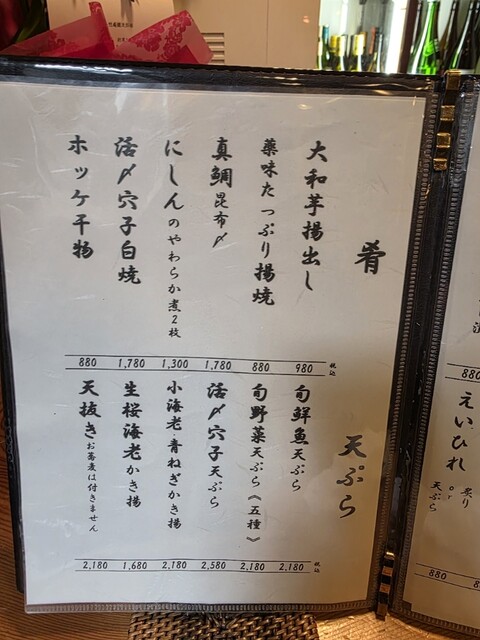 肴
大和芋揚出し
980
薬味たっぷり揚焼
880
真鯛昆布〆
1,780
にしんのやわらか煮2枚
1,300
活〆穴子白焼
1,780
ホッケ干物
880
税込
天ぷら
旬鮮魚天ぷら
2,180
旬野菜天ぷら《五種》
2,180
活〆穴子天ぷら
2,580
小海老青ねぎかき揚
2,180
生桜海老かき揚
1,680
天抜きお蕎麦は付きません
2,180
税込
えいひれ
炙り
or
天ぷら
880